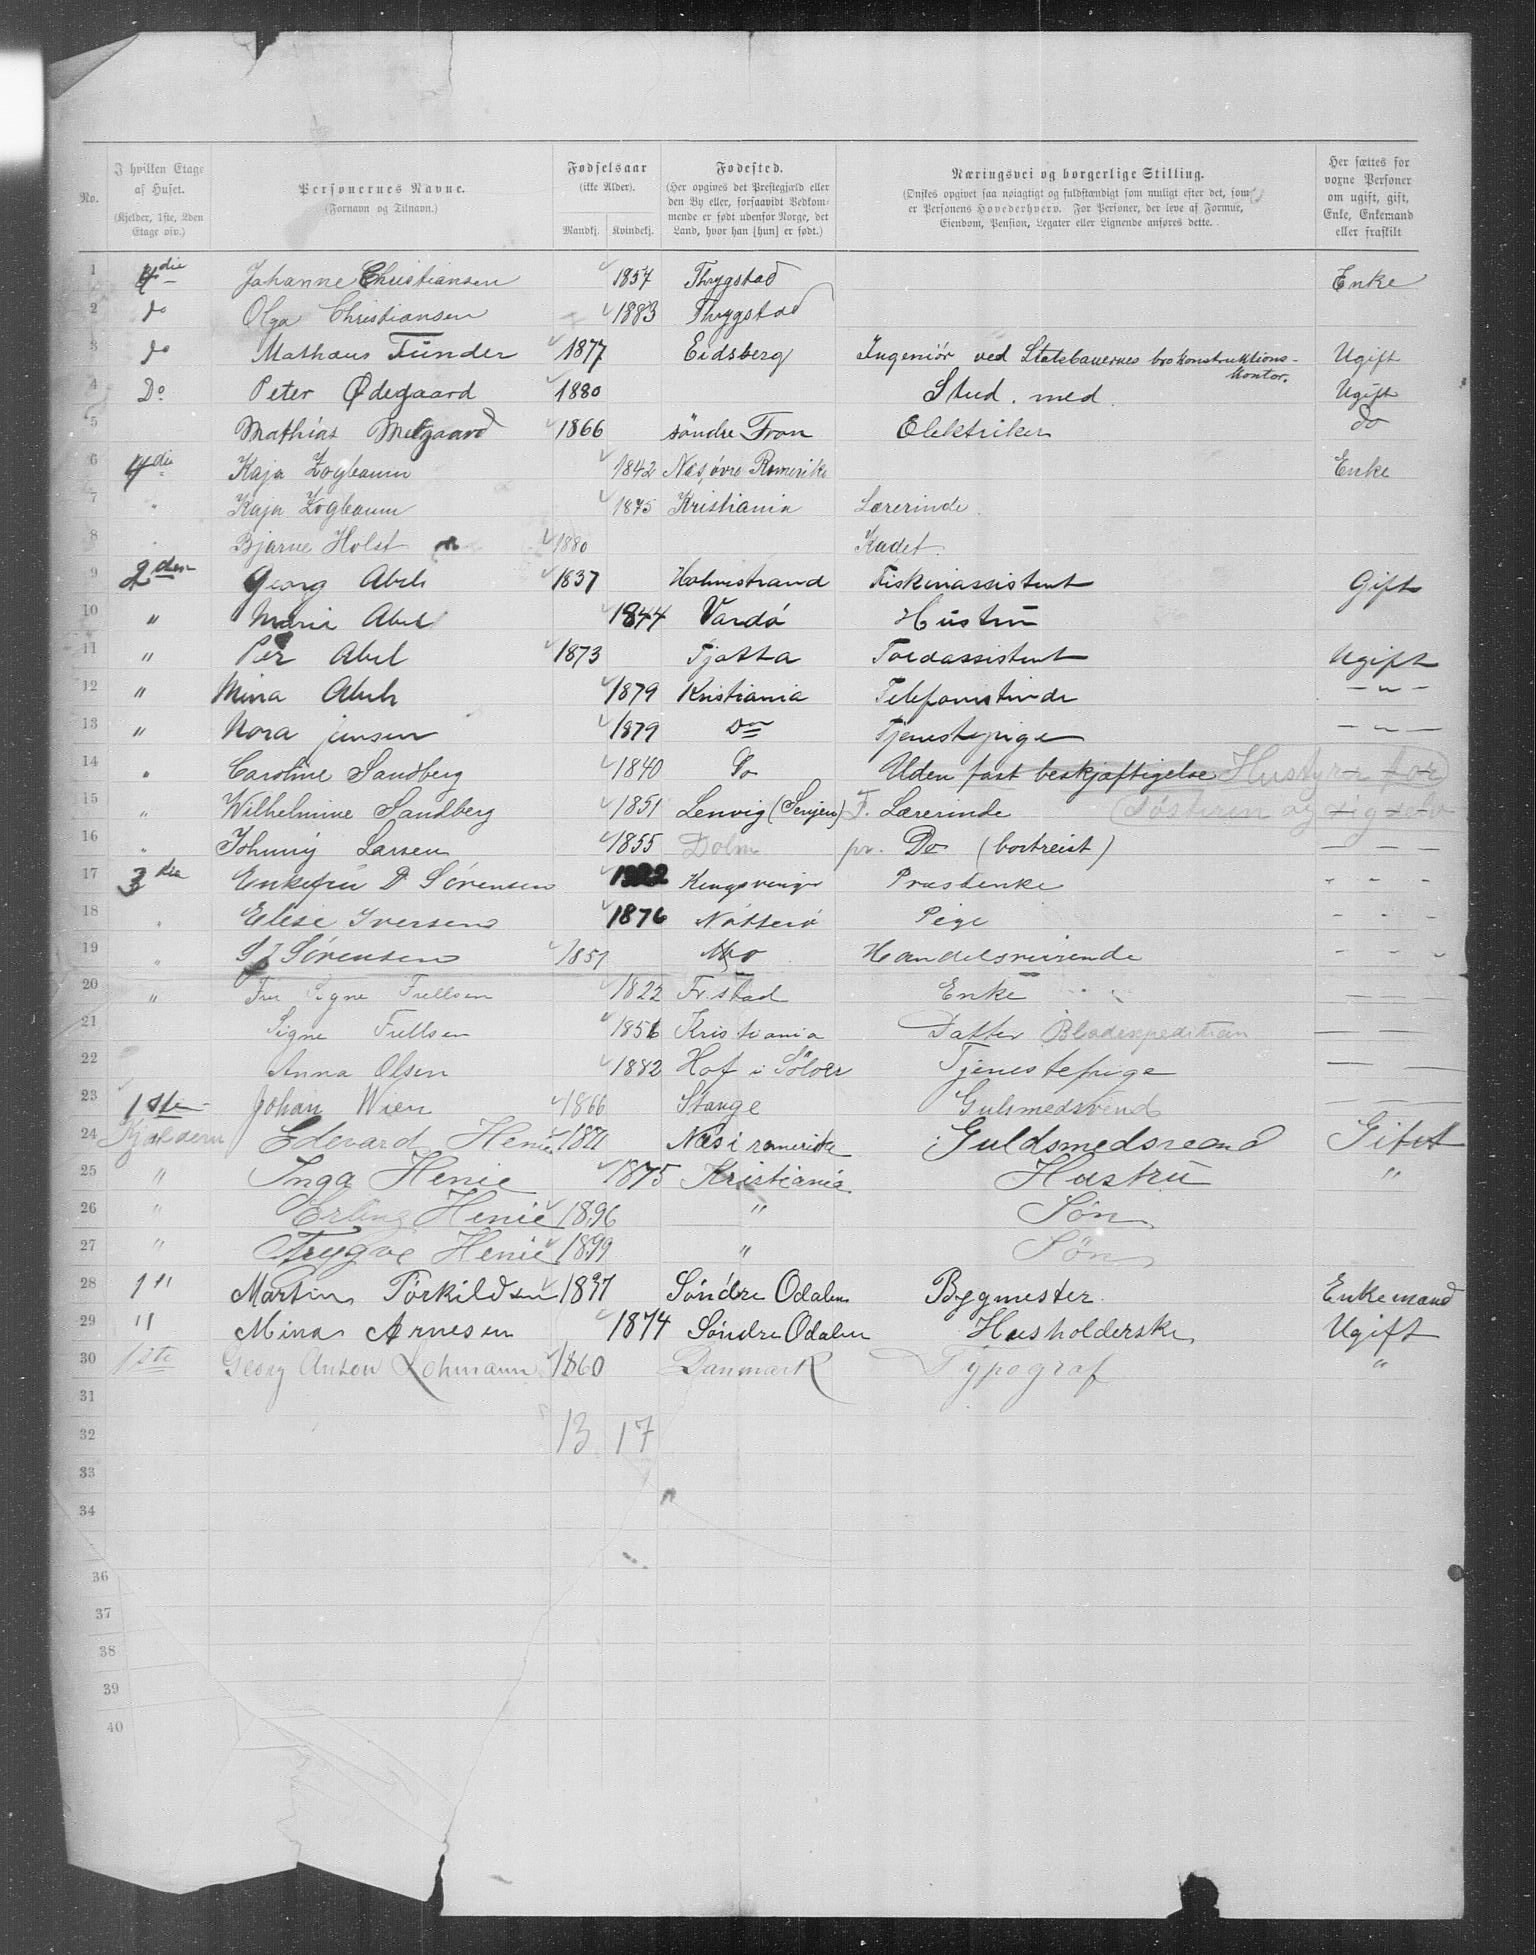 No. I hvilken Etage af Huset. (Kjelder, 1ste, 2den Etage osv.) Personernes Navne. (Fornavn og Tilnavn.) Fødselsaar (ikke Alder). Mandkj. Kvindekj. Fødested. (Her opgives det Prestegjæld eller den By eller, forsaavidt Vedkommende er født udenfor Norge, det Land, hvor han [hun] er født.) Næringsvei og borgerlige Stilling. (Ønskes opgivet saa nøiagtigt og fuldstændigt som muligt efter det, som er Personens Hovederhverv. For Personer, der leve af Formue, Eiendom, Pension, Legater eller Lignende anføres dette. Her sættes for voxne Personer om ugift, gift, Enke, Enkemand eller fraskilt
1 4die Johanne Christiansen 1857 Thrygstad Enke
2 do Olga Christiansen 1883 Thrygstad
3 do Mathæus Tünder 1877 Eidsberg Ingeniör ved Statsbanernes brokonstruktions- Kontor. Ugift
4 Do Peter Ødegaard 1880 Stud. med. Ugift
5 Mathias Melgaard 1866 söndre Fron Elektriker do
6 4die Kaja Zogbaum 1842 Næs, øvre Romerike Enke
7 " Kaja Zogbaum 1875 Kristiania Lærerinde
8 " Bjarne Holst 1880 Kadet
9 2den Georg Abel 1837 Holmestrand Fiskeriassistent Gift
10 " Maria Abel 1844 Vardö Hustru
11 " Per Abel 1873 Tjøtta Toldassistent Ugift
12 " Mina Abel 1879 Kristiania Telefonistinde — " —
13 " Nora jensen 1879 Do Tjenestepige — " —
14 " Caroline Sandberg 1840 Do Uden fast beskjæftigelse Hustyrer for
15 " Wilhelmine Sandberg 1851 Lenvig (Senjen) F. Lærerinde Søsteren og sig selv
16 " Johnny Larsen 1855 Dolm pr. Do (bortreist) — — —
17 3die Enkefru P Sörensen 1822 Kongsvinger Præstenke - - -
18 " Elise Iversen 1876 Nötterö Pige - - -
19 " S J Sörensen 1851 Mo Handelsreisende - - -
20 " Fru Signe Frellsen 1822 Fr.stad Enke — — —
21 Signe Frellsen 1856 Kristiania Datter Bladexpedition — —
22 Anna Olsen 1882 Hof i Sölöer Tjenestepige — —
23 1ste Johan Wien 1866 Stange Gulsmedsvend — — —
24 Kjælderen Edevard Henie 1871 Næs i romerike Guldsmedsvend Gift
25 " Inga Henie 1875 Kristiania Hustru "
26 " Erling Henie 1896 " Søn
27 " Trygve Henie 1899 " Søn
28 1ll Martin Törkildsen 1837 Söndre Odalen Bygmester Enkemand
29 " Mina Arnesen 1874 Söndre Odalen Husholderske Ugift
30 1ste Georg Anton Lohmann 1860 Danmark Typograf "
31
32 13 17
33
34
36
37
38
39
40